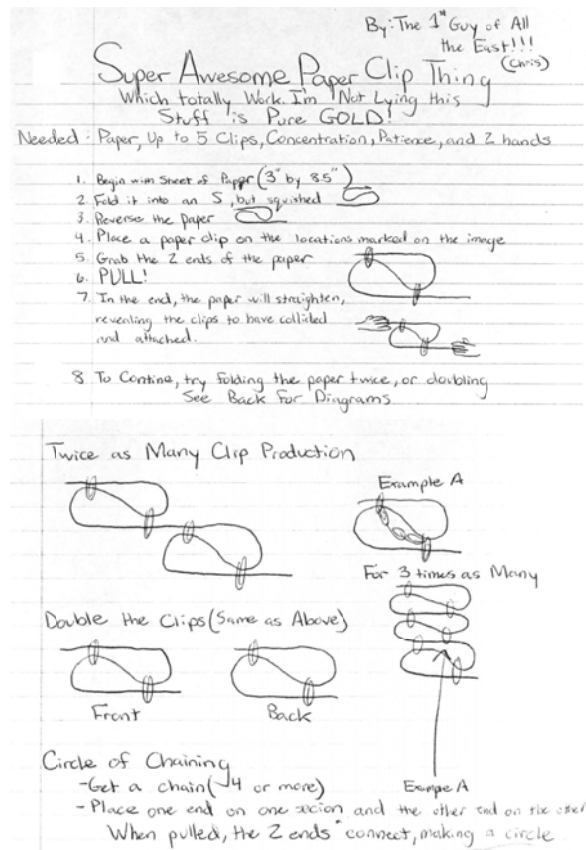 By: The 1st Guy of All
the East!!!
(Chris)
Super Awesome Paper Clip Thing
Which totally Work. I'm Not Lying this
Stuff is Pure GOLD!
Needed: Paper, Up to 5 Clips, Concentration, Patience, and 2 hands
1. Begin with Sheet of Paper (3" by 8.5")
2. Fold it into an S, but squished
3. Reverse the paper
4. Place a paper clip on the locations marked on the image
5. Grab the 2 ends of the paper
6. PULL!
7. In the end, the paper will straighten,
revealing the clips to have collided
and attached.
8. To Contine, try folding the paper twice, or doubling
See Back For Diagrams
Twice as Many Clip Production
Example A
For 3 times as Many
Double the Clips (Same as Above)
Front
Back
Circle of Chaining
-Get a chain (4 or more)
Exampe A
-Place one end on one and the other end on the other
When pulled, the 2 ends connect, making a circle